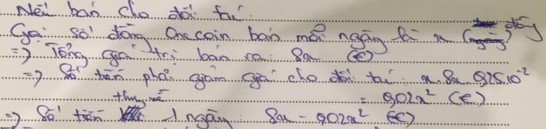 Nếu bán cho đối tác:
Gọi số đồng Onecoin bán mỗi ngày là x (đồng)
=> Tổng giá trị bán ra: 8x (€)
=> Số tiền phải giảm giá cho đối tác: x.8x.0,25.10⁻²
= 0,02x² (€)
=> Số tiền thu về 1 ngày: 8x - 0,02x² (€)